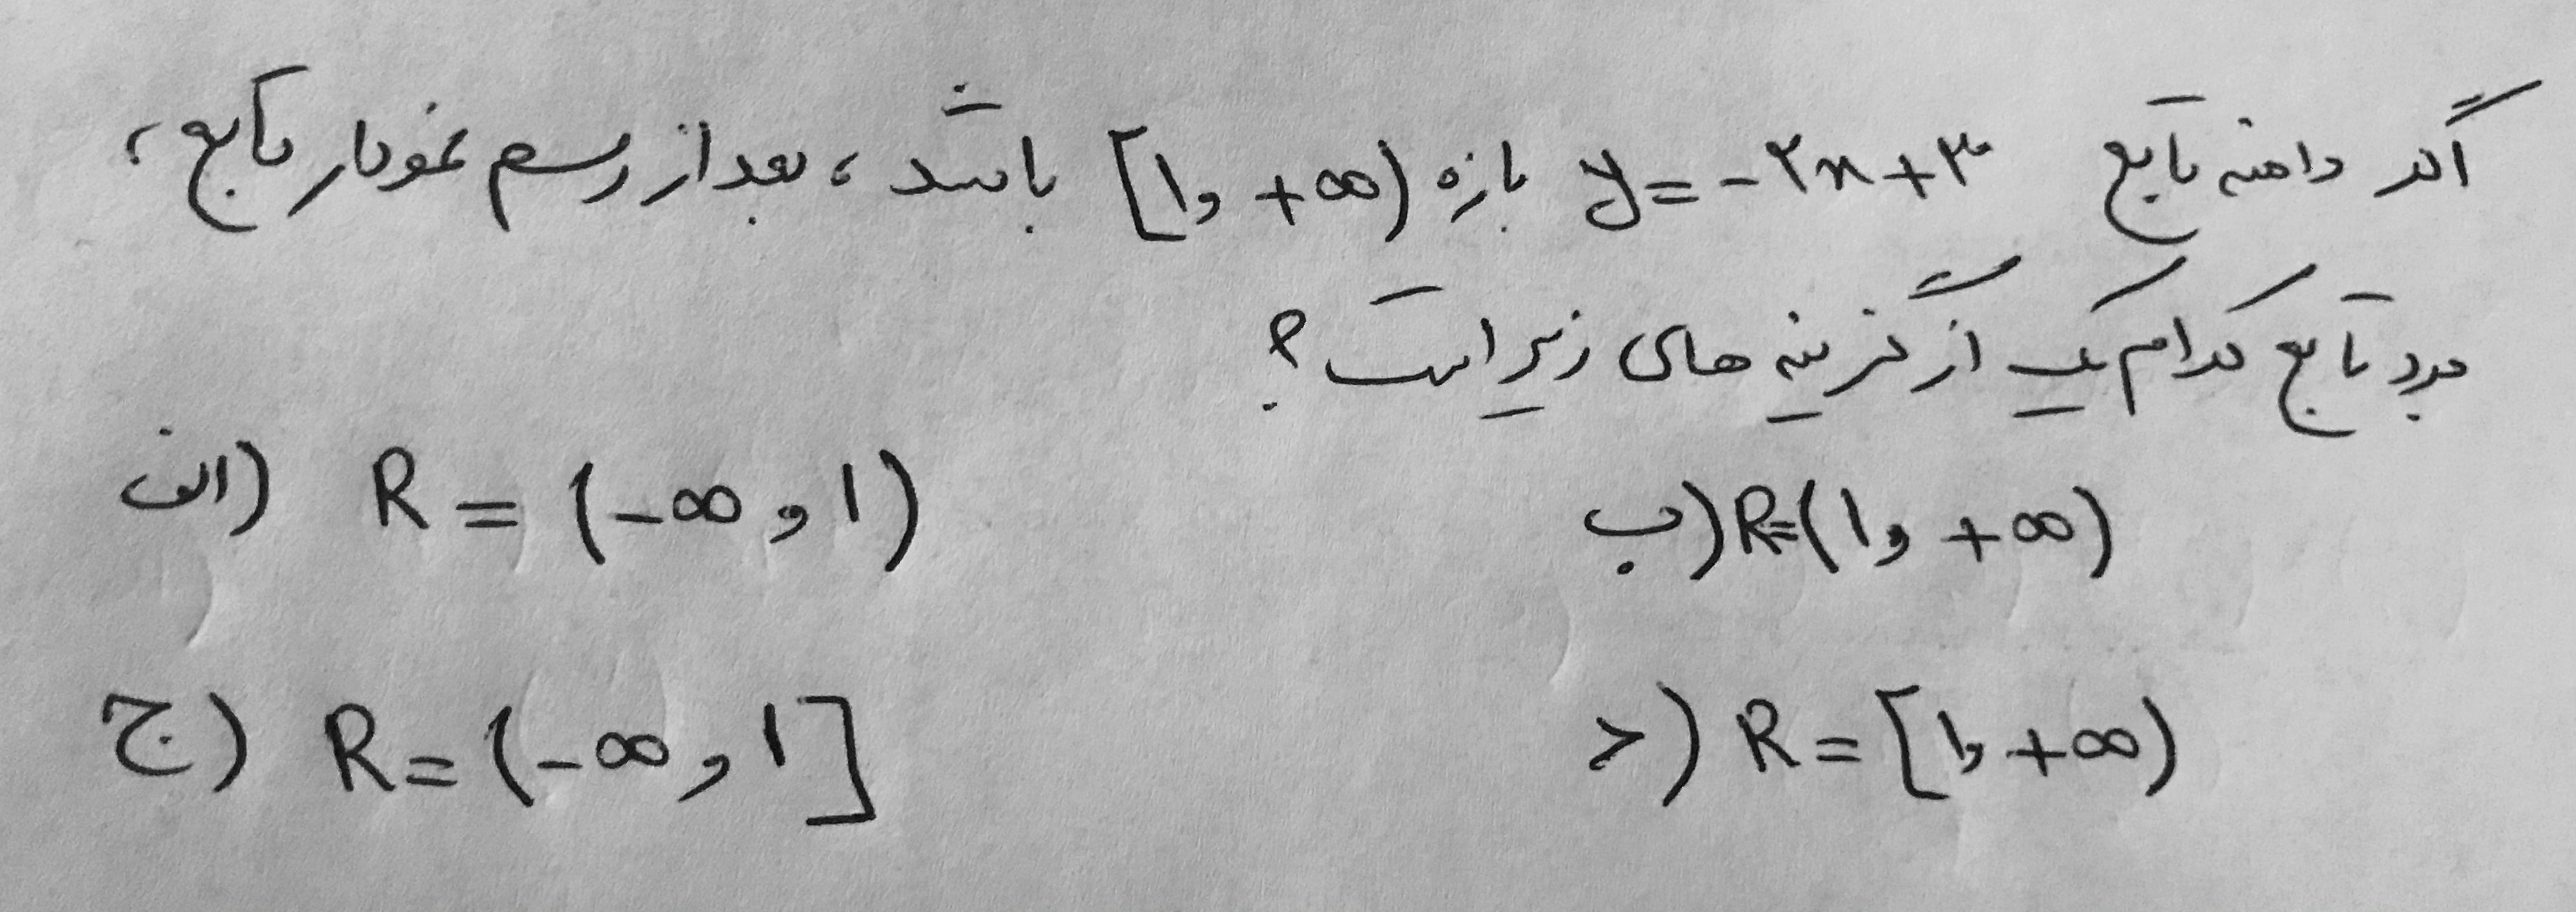 اگر دامنه تابع y = -۲x + ۳ بازه [۱ و +∞) باشد ، بعد از رسم نمودار تابع ،
برد تابع کدام یک از گزینه های زیر است ؟
الف) R = (-∞ و ۱)
ب) R = (۱ و +∞)
ج) R = (-∞ و ۱]
د) R = [۱ و +∞)